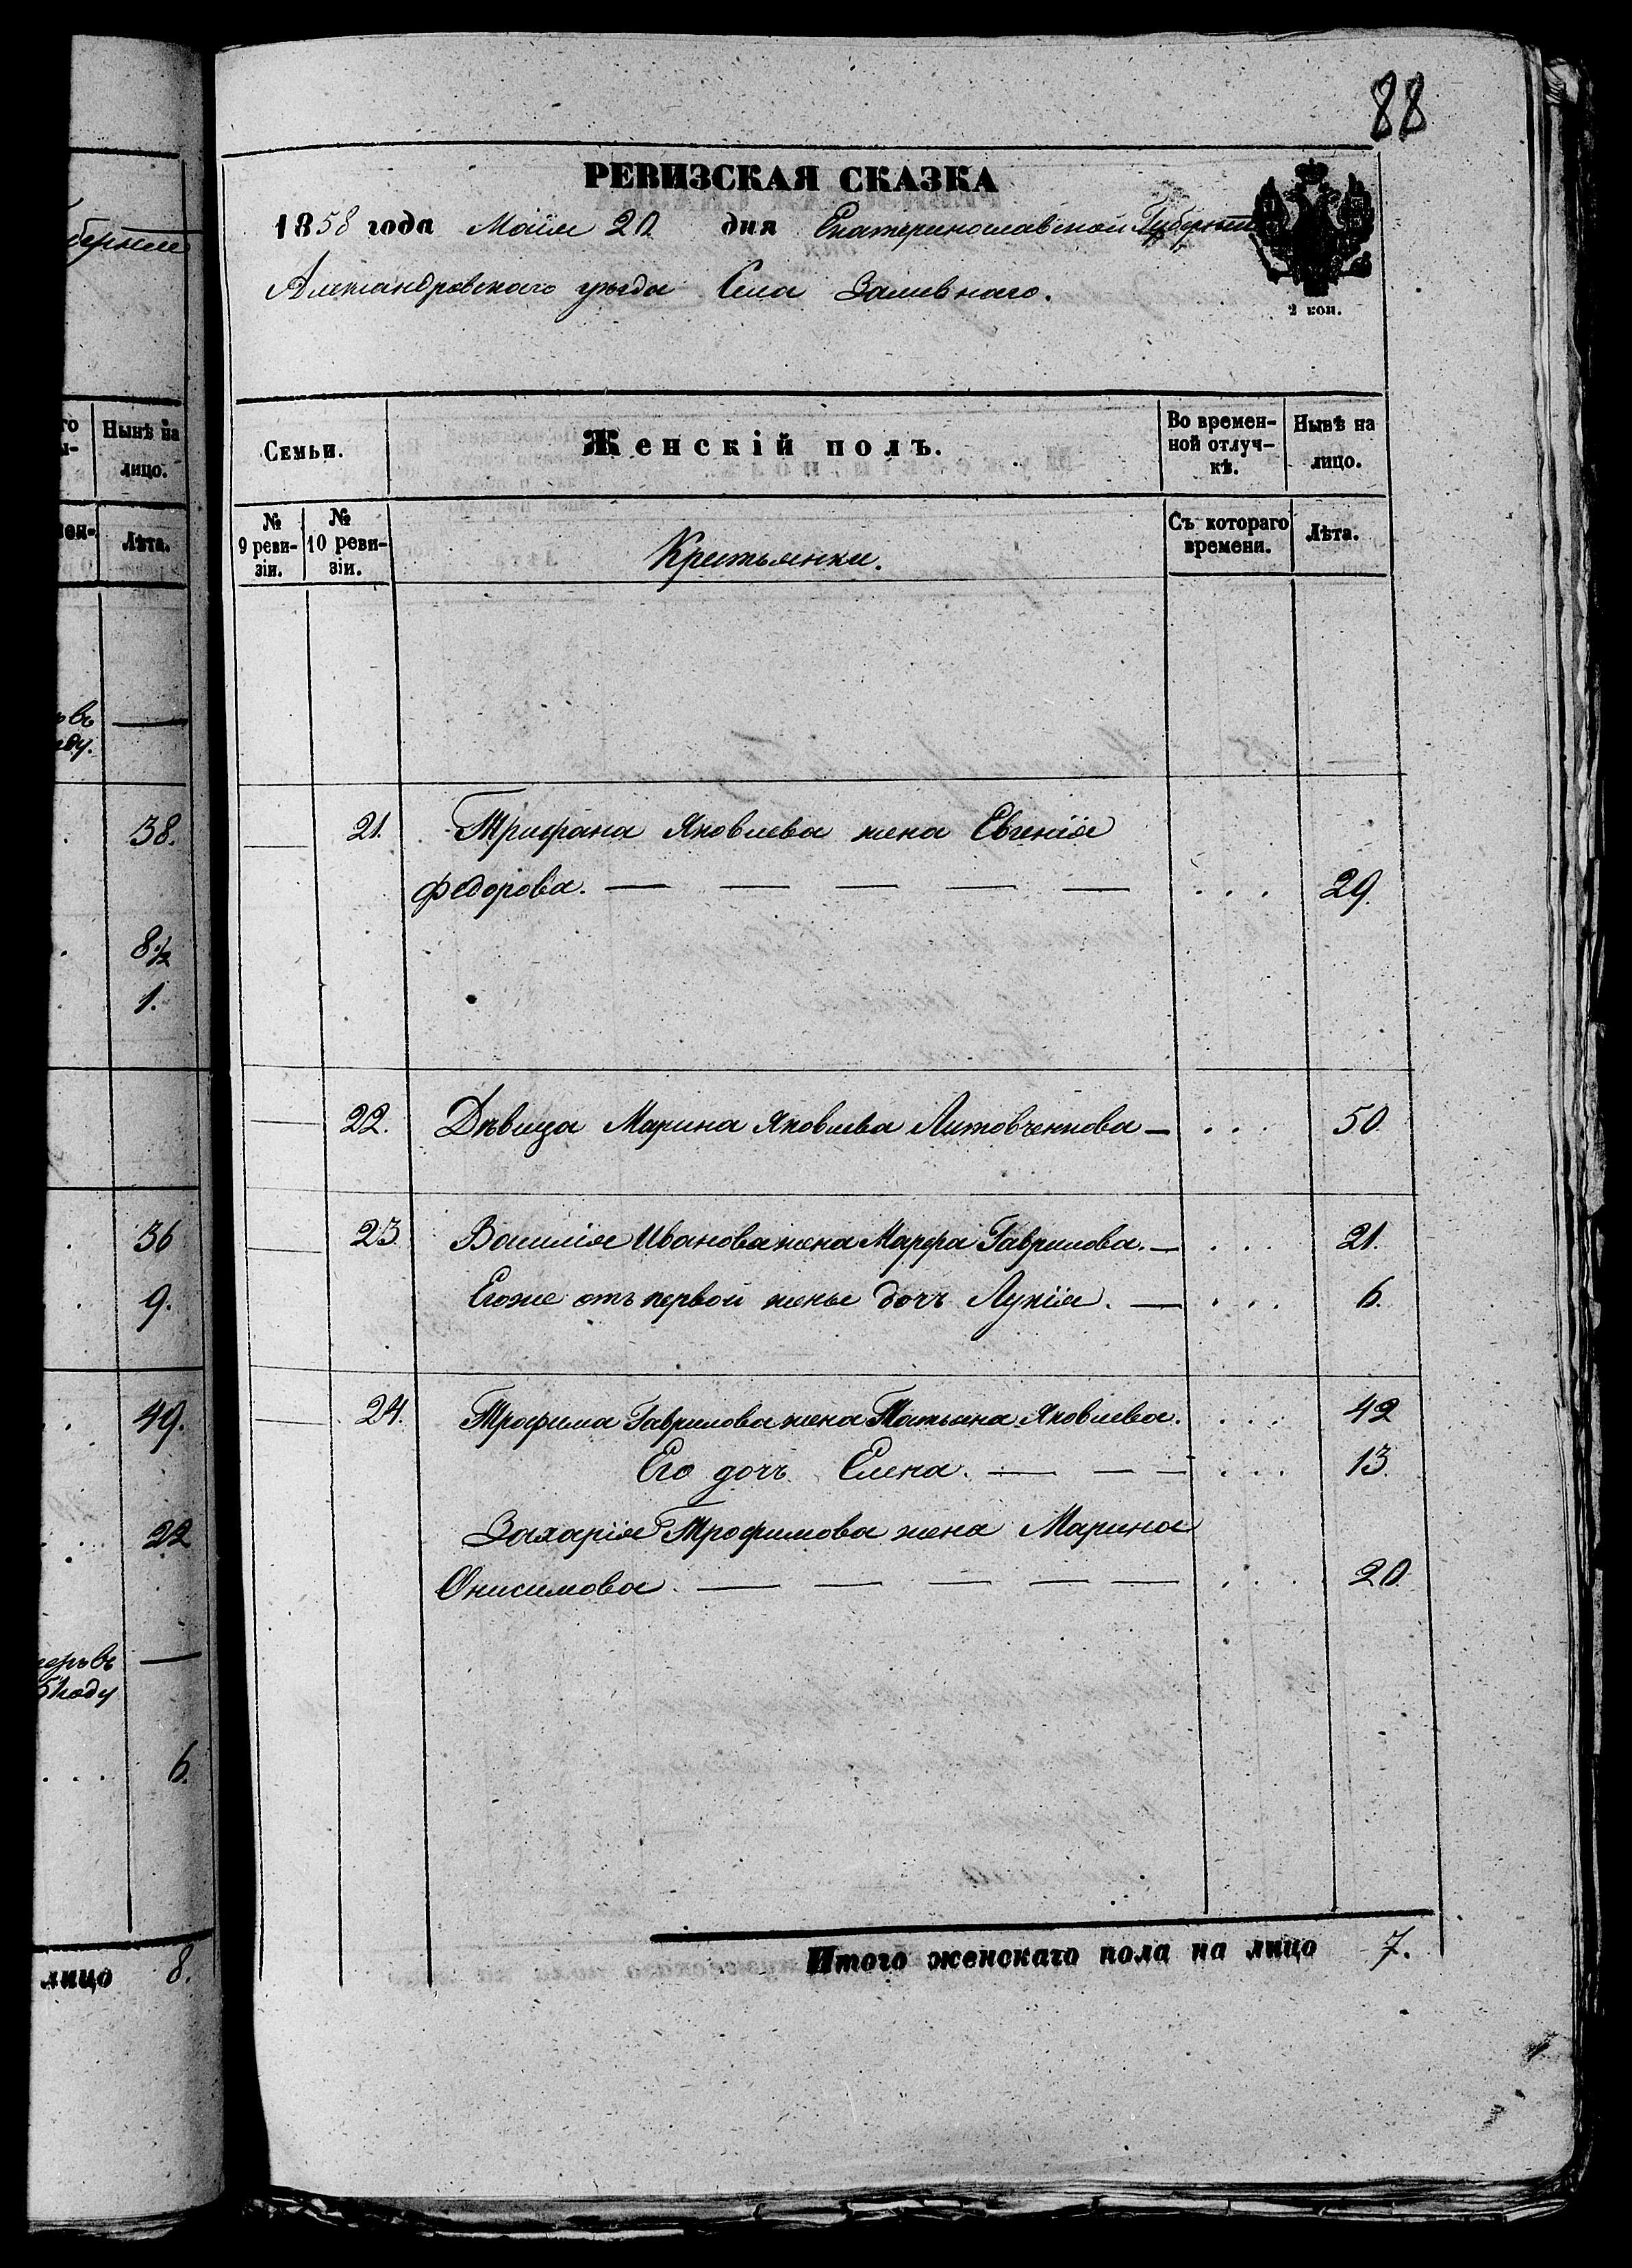 88
РЕВИЗСКАЯ СКАЗКА
1858 года Маiя 20 дня Екатеринославской Губернiи
Александровского уезда Села Заливнаго.
2 коп.
берніи
го Нынѣ на
лицо.
Лѣта.
Семьи. Женскій полъ. Во времен-ной отлуч-кѣ. Нынѣ на лицо.
№ 9 реви-зіи. № 10 реви-зіи. Крестьянки. Съ котораго времени. Лѣта.
21. Трифана Яковлева жена Евгенія
Федорова. — — — — — . . . 29.
22. Дѣвица Марина Яковлева Литовченкова — . . . 50.
23 Василія Иванова жена Марфа Гаврилова. — . . . 21.
Егоже отъ первой жены дочъ Лукія. — . . . 6.
24. Трофима Гаврилова жена Татьяна Яковлева. . . . 42
Его дочъ Елена. — — — . . . 13.
Захарія Трофимова жена Марина
Онисимова. — — — — — . . . 20.
Итого женскаго пола на лицо 7.
38.
8 1/2
1.
36
9.
49.
22
6.
лицо 8.